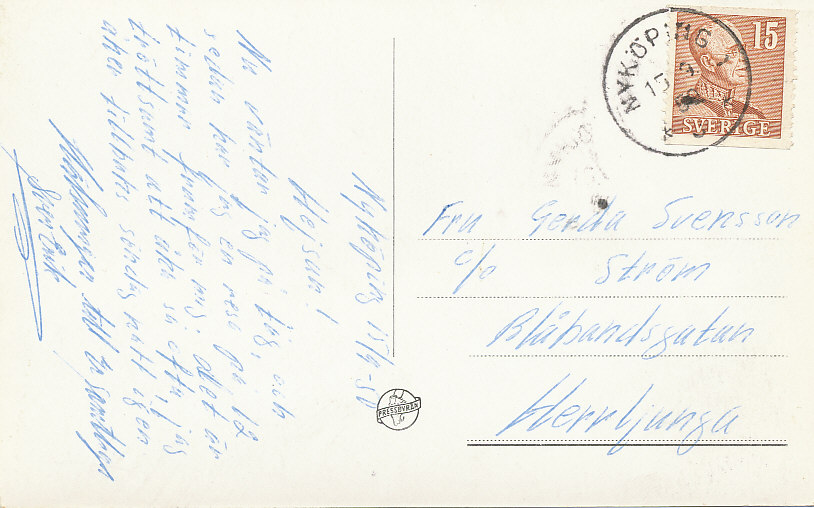 Nyköping 15/9-50
Hejsan!
Nu väntar jag på tåg, och
sedan har jag en resa på 12
timmar framför mig. Det är
tröttsamt att åka så ofta, jag
åker tillbaks söndag natt igen
Hälsningar till er samtliga
Sven Erik
Fru Gerda Svensson
c/o Ström
Blåbandsgatan
Herrljunga
PRESSBYRÅN
NYKÖPING 1
15 9
50
15
SVERIGE